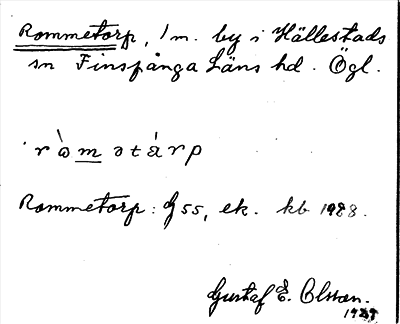 Rommetorp, 1 m. by i Hällestads
sn Finspånga Läns hd. Ögl.
ròmətárp
Rommetorp: G 55, ek. kb 1988.
Gustaf E. Olsson.